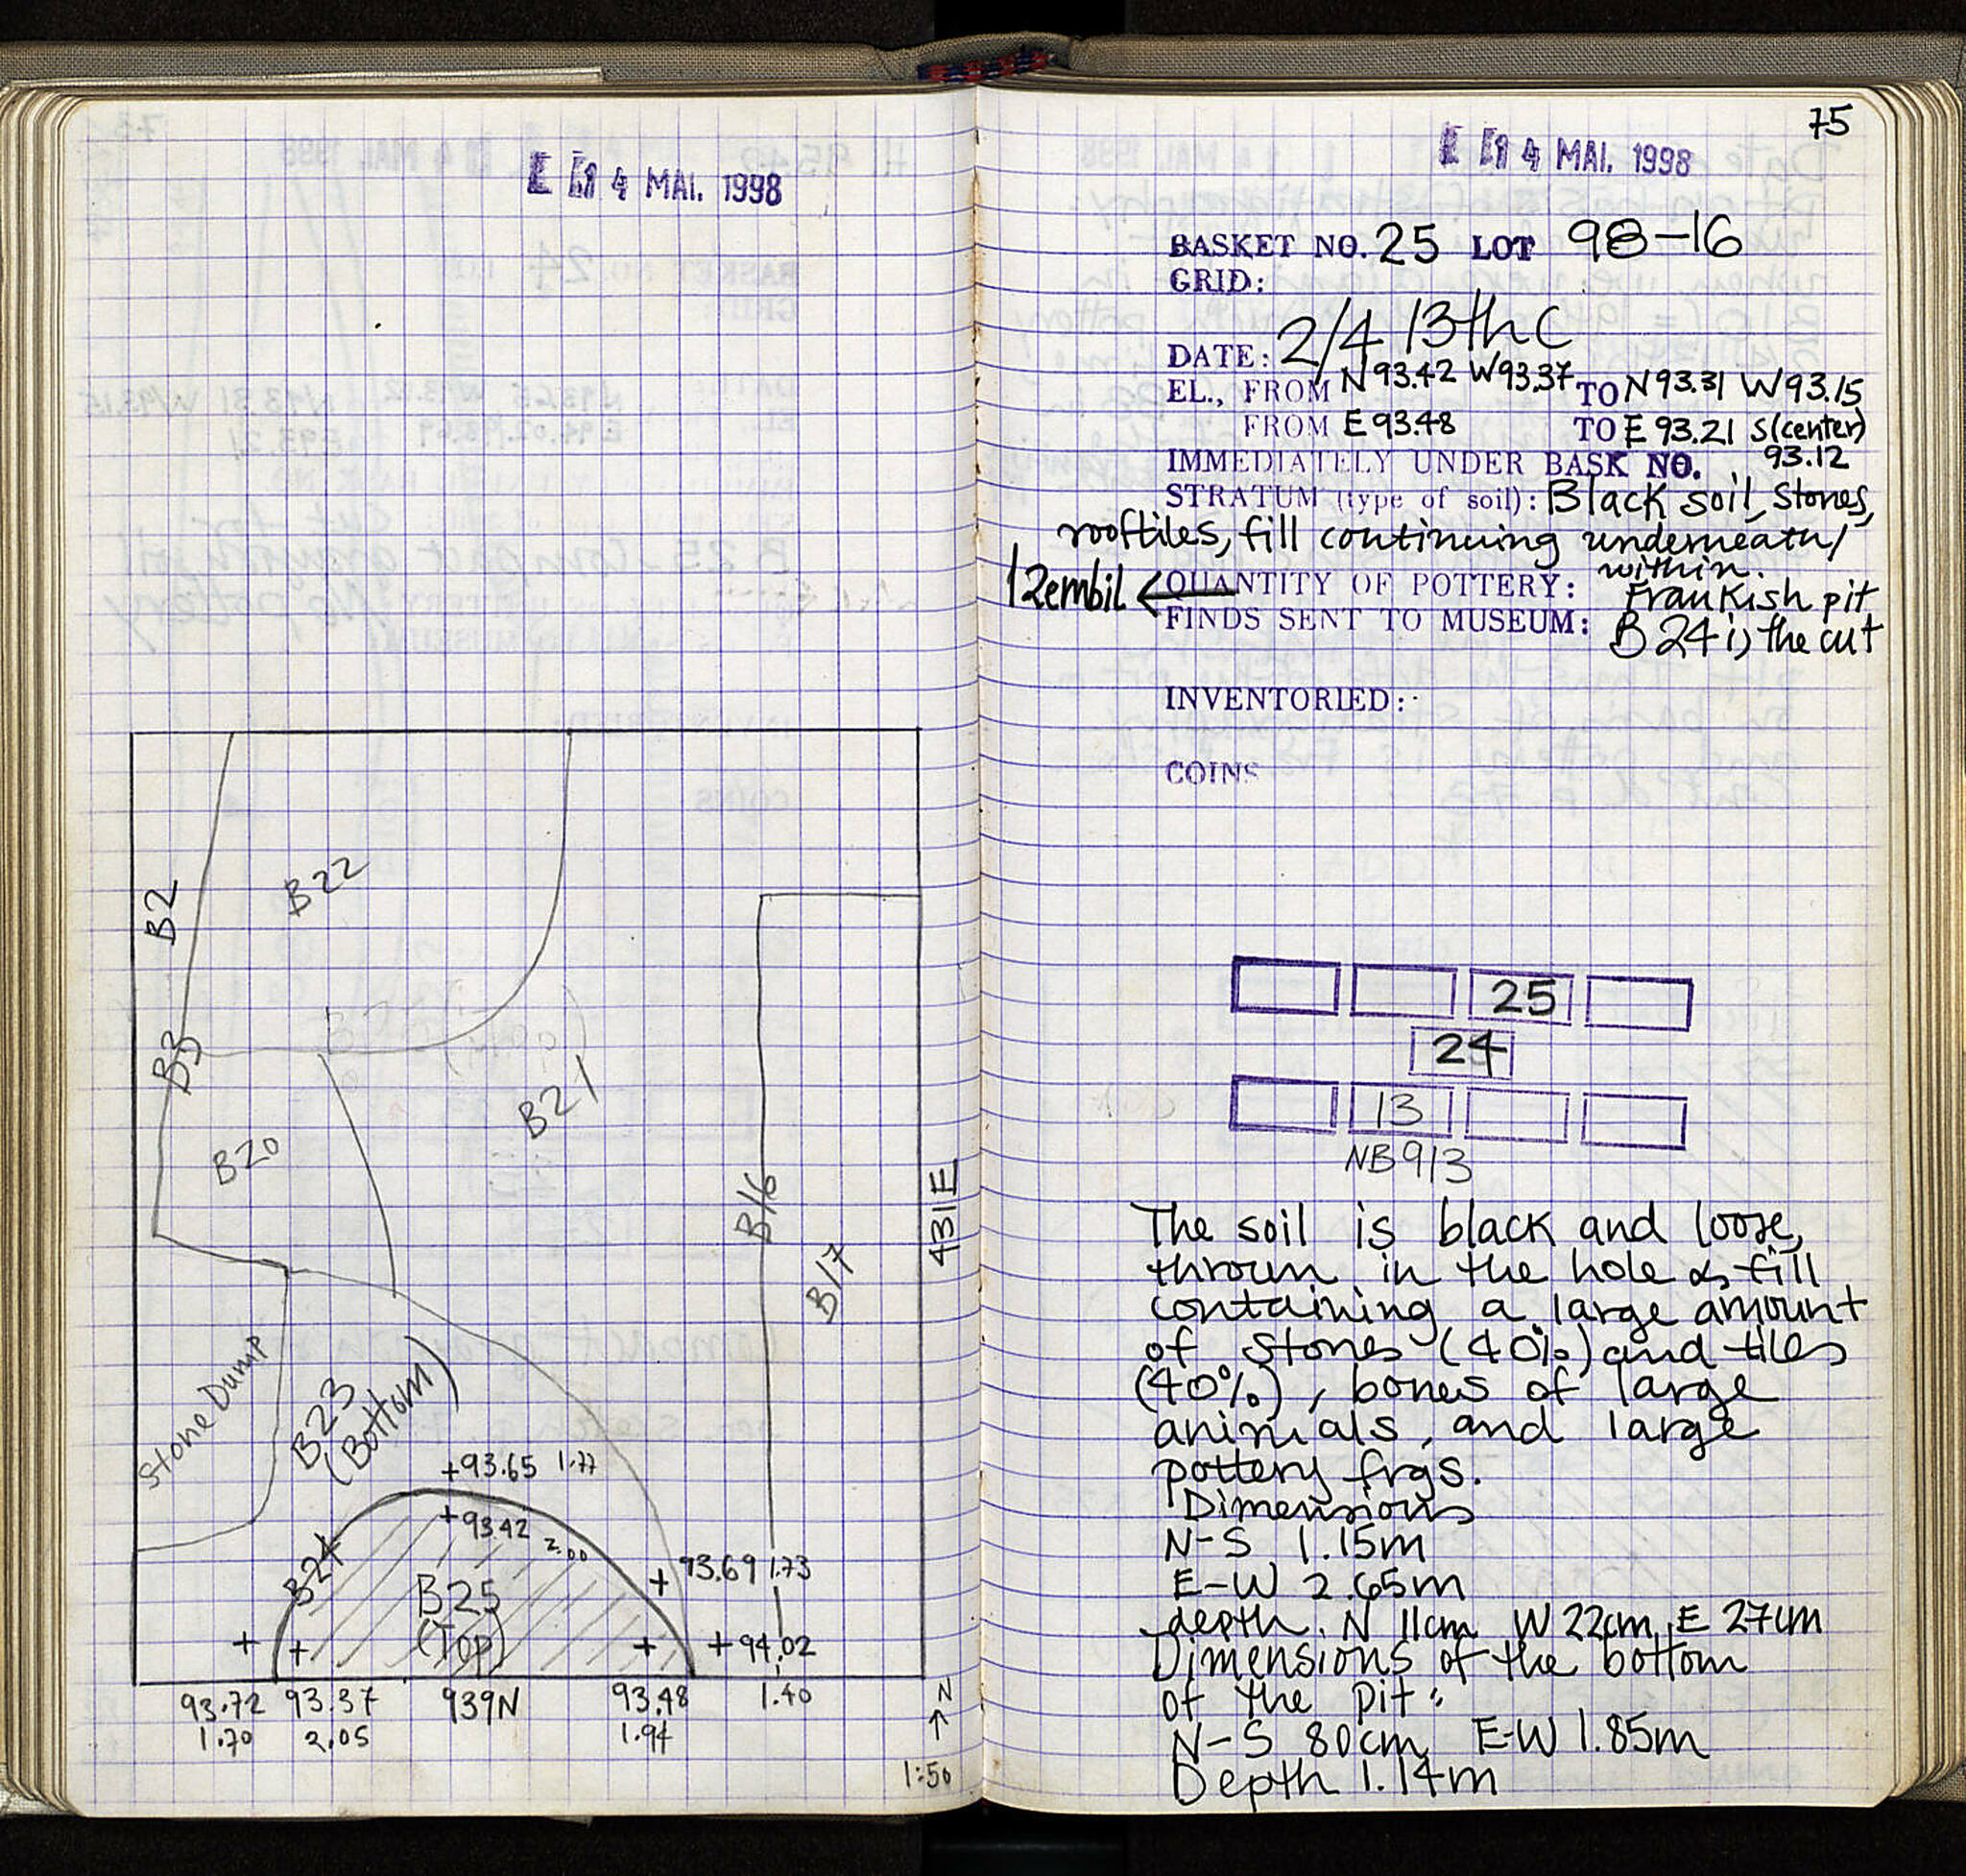 4 MAI. 1998
B22
B2
B3
B21
B20
B16
431E
B17
Stone Dump
B23
(Bottom)
+93.65 1.77
+93.42
2.00
B24
93.69 1.73
B25
(Top)
+94.02
93.72 93.37 939N 93.48 1.40 N
1.70 2.05 1.94
1:50
75
4 MAI. 1998
BASKET NO. 25 LOT 98-16
GRID:
DATE: 2/4 13th C
EL., FROM N 93.42 W93.37 TO N93.31 W93.15
FROM E 93.48 TO E 93.21 S(center)
IMMEDIATELY UNDER BASK NO. 93.12
STRATUM (type of soil): Black soil, stones,
rooftiles, fill continuing underneath/
within.
QUANTITY OF POTTERY: Frankish pit
FINDS SENT TO MUSEUM: B 24 is the cut
INVENTORIED:
COINS
25
24
13
NB913
The soil is black and loose,
thrown in the hole as fill
containing a large amount
of stones (40%) and tiles
(40%), bones of large
animals, and large
pottery frgs.
Dimensions
N-S 1.15m
E-W 2.65m
depth. N 11cm W 22cm E 27cm
Dimensions of the bottom
of the pit:
N-S 80cm, E-W 1.85m
Depth 1.14m